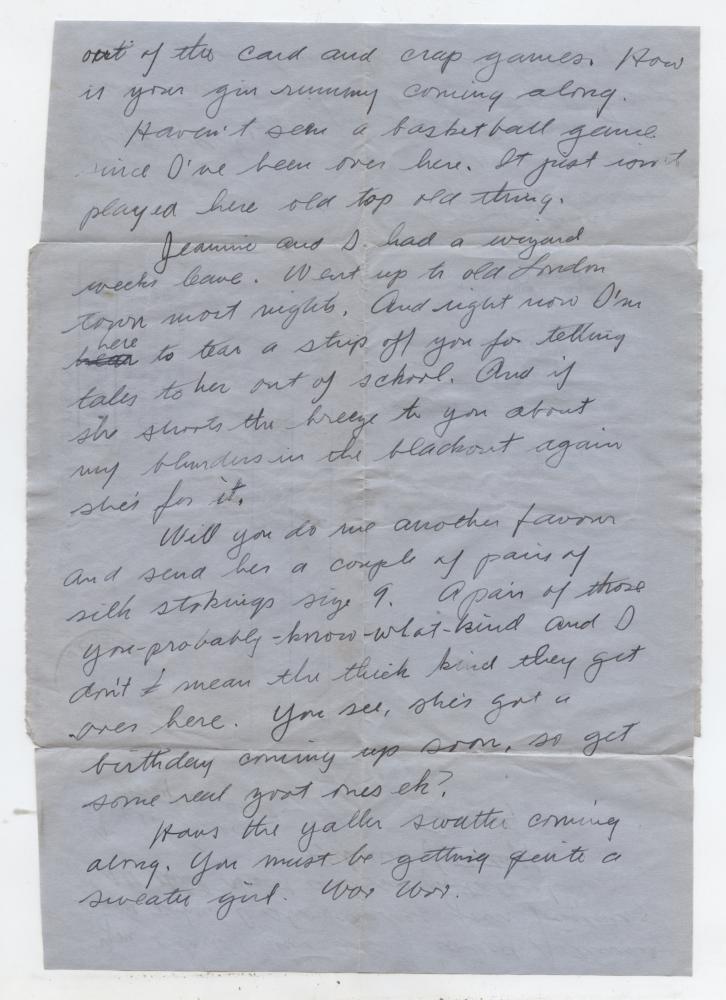 out of the card and crap games. How
is your gin rummy coming along.
Haven't seen a basketball game
since I've been over here. It just isn't
played here old top old thing.
Jeannie and I had a wizard
weeks leave. Went up to old London
town most nights. And right now I'm
here
to tear a strip off you for telling
tales to her out of school. And if
she shoots the breeze to you about
my blunders in the blackout again
she's for it.
Will you do me another favour
and send her a couple of pairs of
silk stokings size 9. A pair of those
you-probably-know-what-kind and I
don't mean the thick kind they get
over here. You see, she's got a
birthday coming up soon, so get
some real ones eh?
Hows the yaller sweater coming
along. You must be getting quite a
sweater girl. Wow Wow.